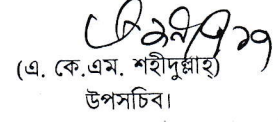 (এ. কে.এম. শহীদুল্লাহ)
উপসচিব।